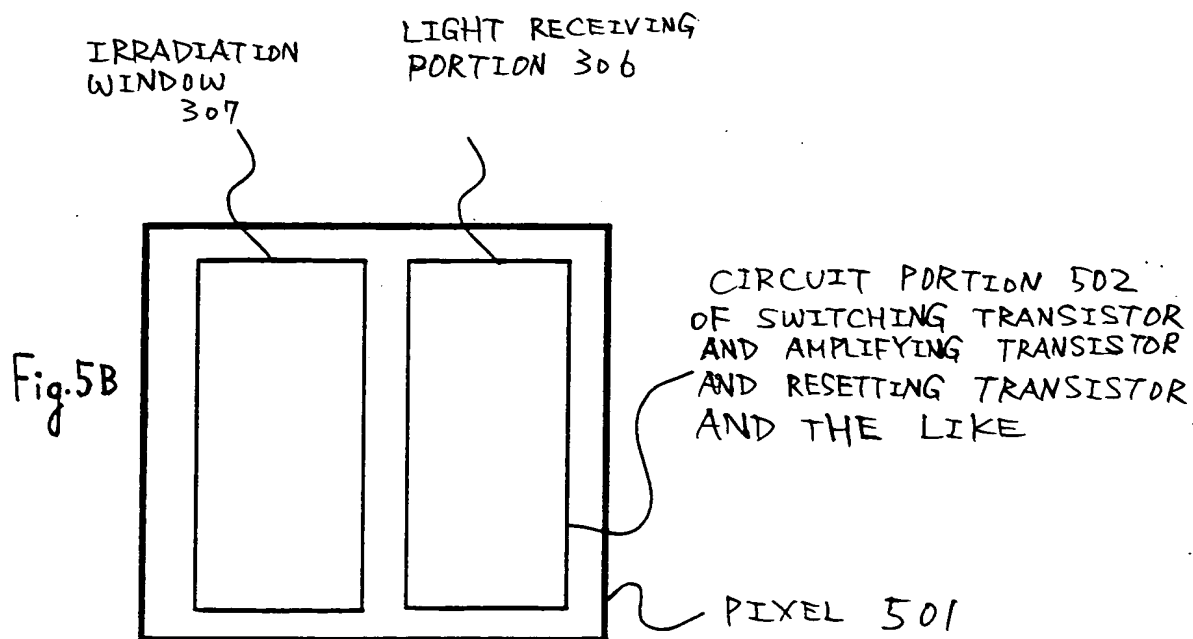 IRRADIATION
WINDOW
307
LIGHT RECEIVING
PORTION 306
CIRCUIT PORTION 502
OF SWITCHING TRANSISTOR
AND AMPLIFYING TRANSISTOR
AND RESETTING TRANSISTOR
AND THE LIKE
Fig.5B
PIXEL 501